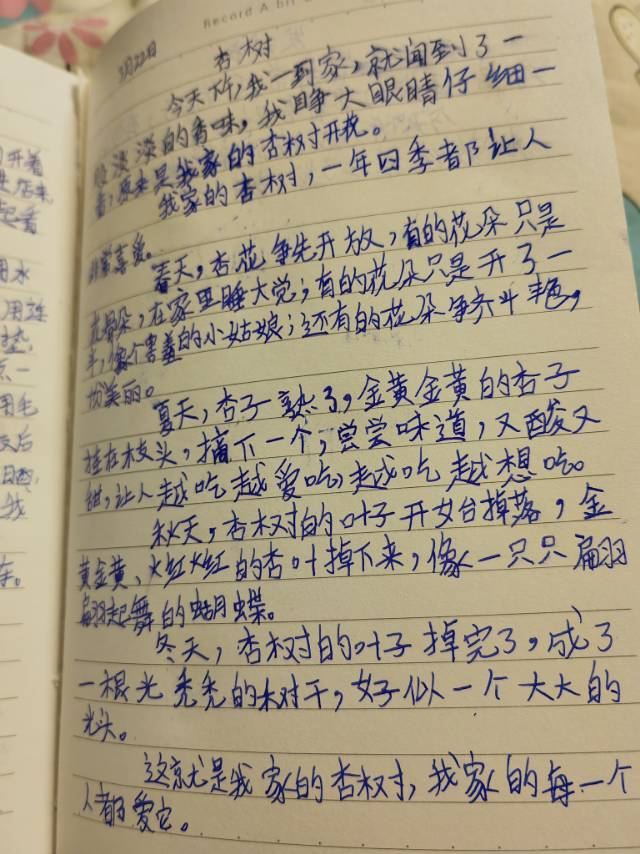 Record A bit
3月22日
杏树
今天下午,我一到家,就闻到了一
股淡淡的香味,我睁大眼睛仔细一
看,原来是我家的杏树开花。
我家的杏树,一年四季都让人
非常喜爱。
春天,杏花争先开放,有的花朵只是
花骨朵,在家里睡大觉;有的花朵只是开了一
半,像个害羞的小姑娘;还有的花朵争齐斗艳,
十分美丽。
夏天,杏子熟了,金黄金黄的杏子
挂在枝头,摘下一个,尝尝味道,又酸又
甜,让人越吃越爱吃,越吃越想吃。
秋天,杏树的叶子开始掉落,金
黄金黄、火红火红的杏叶掉下来,像一只只扁羽
扁羽起舞的蝴蝶。
冬天,杏树的叶子掉完了,成了
一根光秃秃的树干,好似一个大大的
光头。
这就是我家的杏树,我家的每一个
人都爱它。
开着
起看
用水
垫
用毛
我